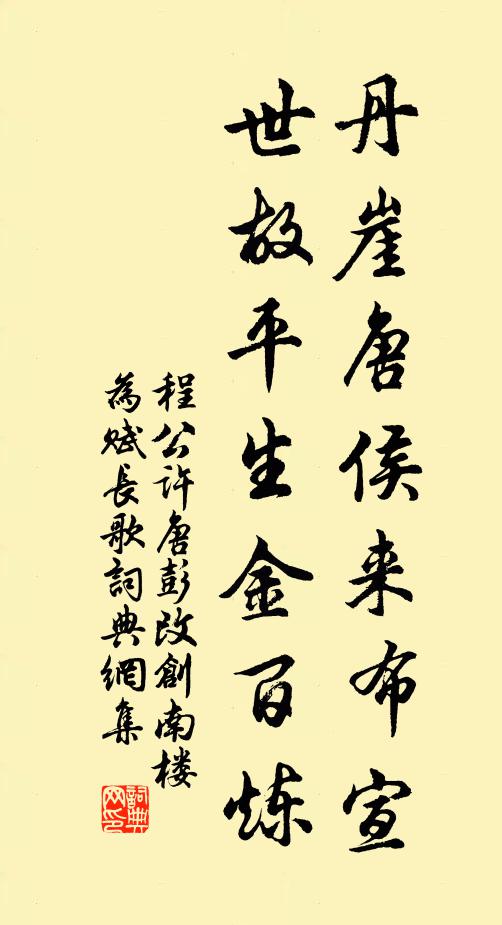 丹崖唐侯来布宣
世故平生金百炼
程公许唐彭改創南楼
為赋長歌詞典網集
詞典网印